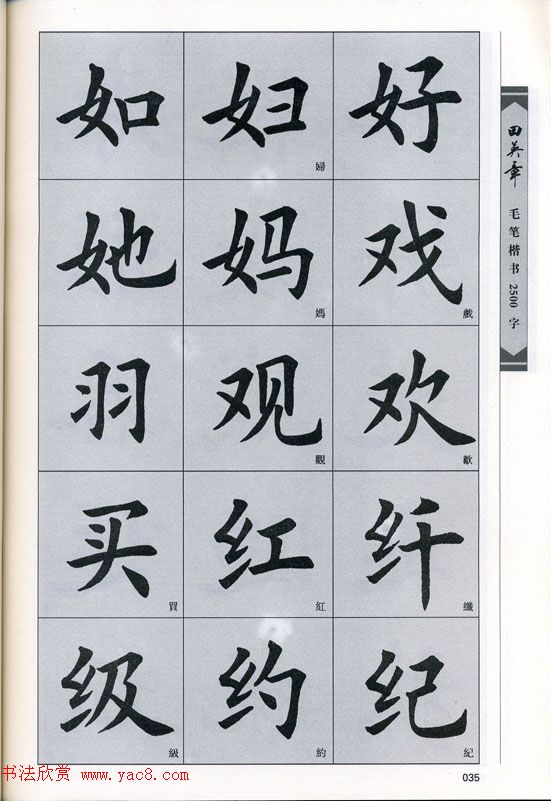 如 妇 婦 好
她 妈 媽 戏 戲
羽 观 觀 欢 歡
买 買 红 紅 纤 纖
级 級 约 約 纪 紀
田英章
毛笔楷书2500字
书法欣赏 www.yac8.com
035